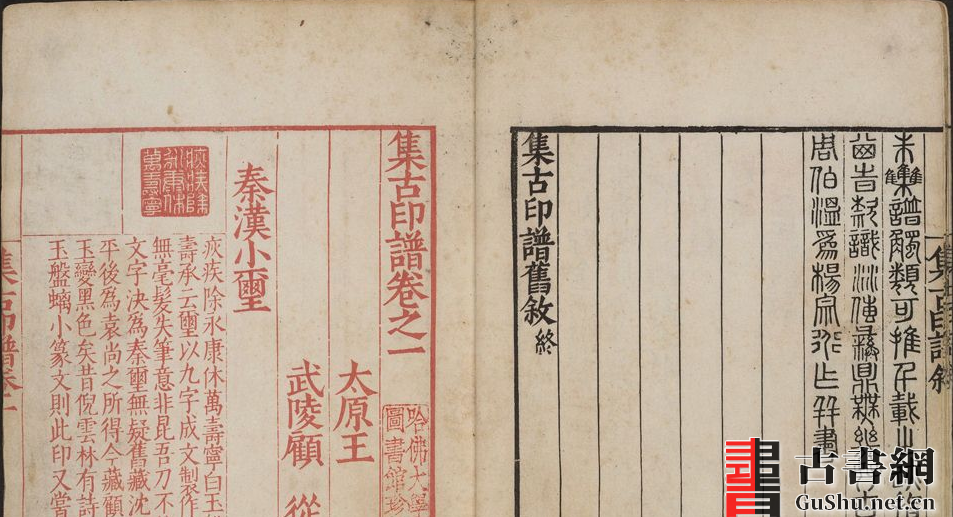 集古印譜敘
集譜觸類可推千載
周伯溫為楊宗
集古印譜舊敘 終
集古印譜卷之一
太原王
哈佛大學
圖書館珍
武陵顧 從
秦漢小璽
疢疾除
永康休
萬壽寧
疢疾除永康休萬壽寧白玉
壽承云璽以九字成文製作
無毫髮失筆意非昆吾刀不
文字決為秦璽無疑舊藏沈
平後為袁尚之所得今藏顧
玉變黑色矣昔倪雲林有詩
玉盤螭小篆文則此印又當
集古印譜卷一
古書網
GuShu.net.cn